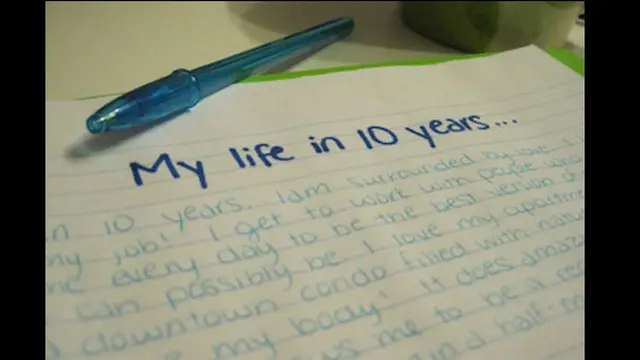 My life in 10 years...
in 10 years. I am surrounded by love. I
my job! I get to work with people who
me every day to be the best version of
I can possibly be. I love my apartment
downtown condo filled with natur
my body! It does amazi
me to be a
and a half-m